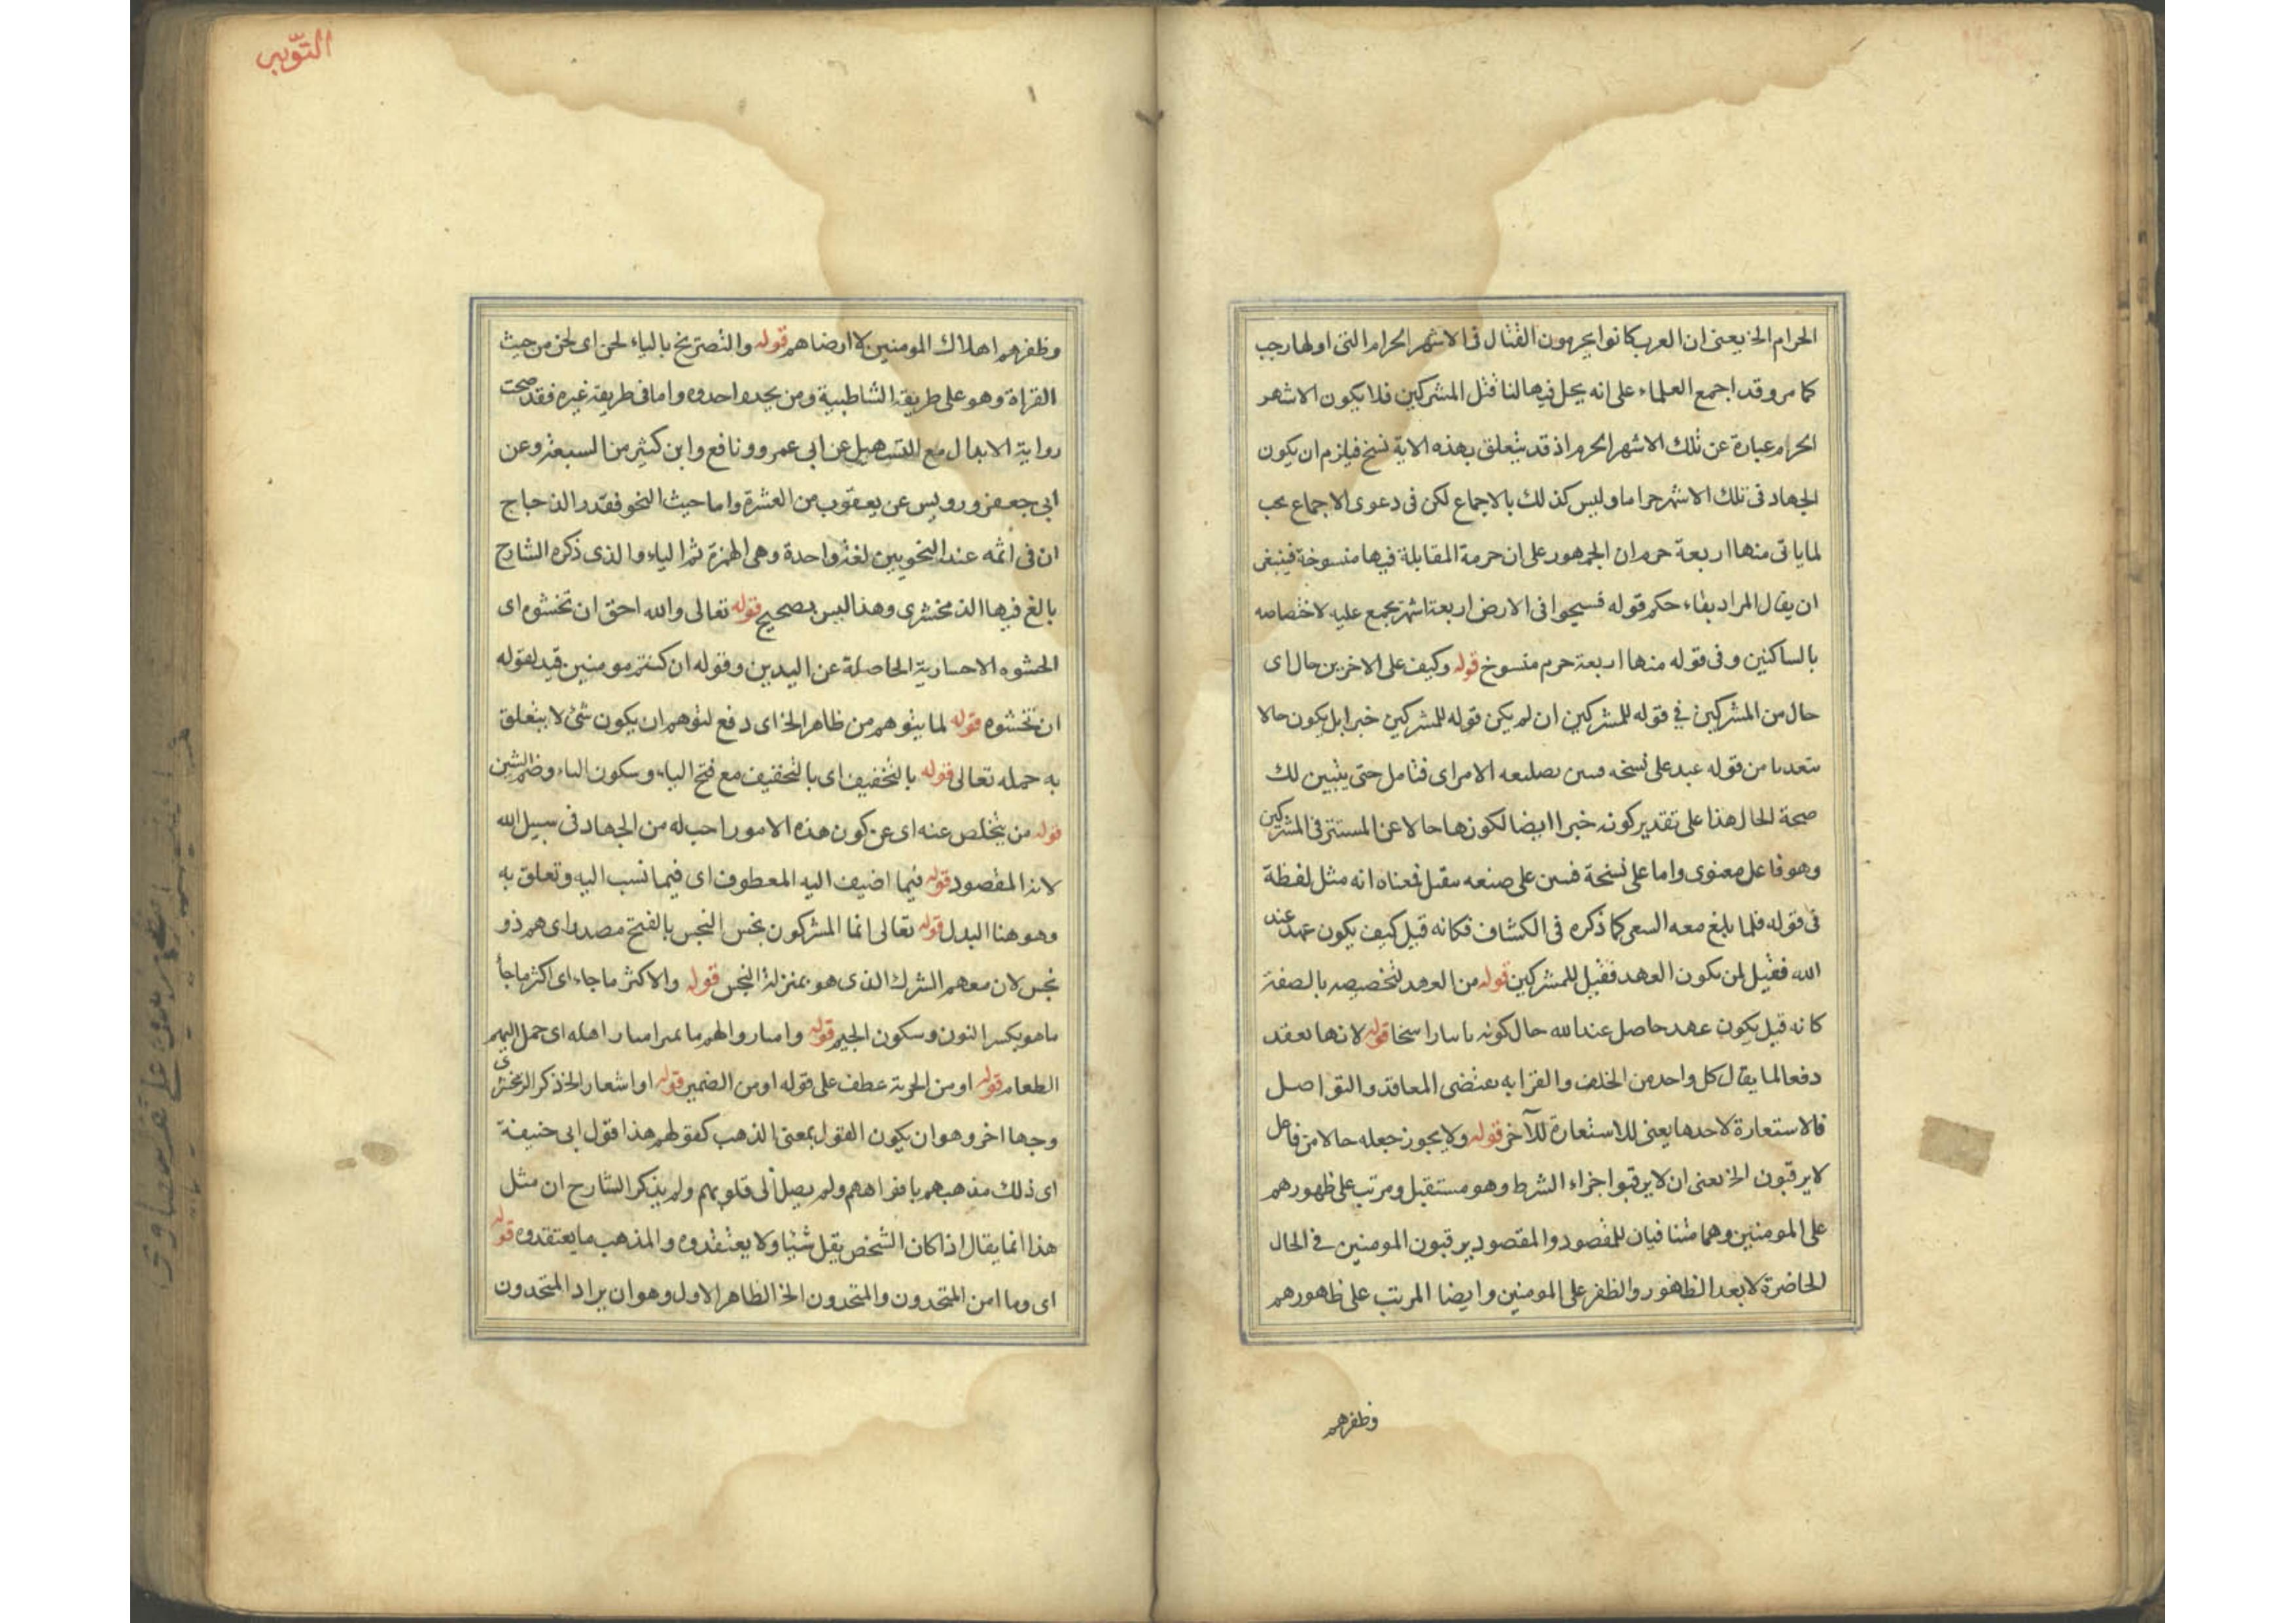 الحرام الخ يعنى ان العرب كانوا يحرمون القتال فى الاشهر الحرام التى اولها رجب
كما مر وقد اجمع العلماء على انه يحل فيها لنا قتل المشركين فلا يكون الاشهر
الحرام عبارة عن تلك الاشهر الحرم اذ قد يتعلق بهذه الاية نسخ فيلزم ان يكون
الجهاد فى تلك الاشهر حراما وليس كذلك بالاجماع لكن فى دعوى الاجماع بحث
لما ياتى منها اربعة حرم ان الجمهور على ان حرمة المقابلة فيها منسوخة فينبغى
ان يقال المراد بقاء حكم قوله فسيحوا فى الارض اربعة اشهر مجمع عليه لاختصاصه
بالساكنين وفى قوله منها اربعة حرم منسوخ قوله وكيف على الاخرين حال اى
حال من المشركين فى قوله للمشركين ان لم يكن قوله للمشركين خبرا بل يكون حالا
من قوله عبد على نسخه الامر اى فتامل حتى يتبين لك
صحة الحال هذا على تقدير كونه خبرا ايضا لكونها حالا عن المستتر فى المشركين
وهو فاعل معنوى واما على نسخة على صنعه فمعناه انه مثل لفظة
فى قوله فلما بلغ معه السعى كما ذكره فى الكشاف فكانه قيل كيف يكون عهد عند
الله فقيل لمن يكون العهد فقيل للمشركين قوله من العهد لتخصيصه بالصفة
كانه قيل يكون عهد حاصل عند الله حال كونه راسخا قوله لانها تعقد
دفعا لما يقال كل واحد من الحلف والقرابه يقتضى المعاقد والتواصل
فالاستعارة لاحدها يعنى للاستعارة للآخر قوله ولا يجوز جعله حالا من فاعل
لا يرقبون الخ يعنى ان لا يرقبوا جزاء الشرط وهو مستقبل ومرتب على ظهورهم
على المومنين وهما متنافيان للمقصود والمقصود يرقبون المومنين فى الحال
الحاضرة لا بعد الظهور والظفر على المومنين وايضا المرتب على ظهورهم
وظفرهم
التوبه
وظفرهم اهلاك المومنين لا ارضاهم قوله والتصريح بالياء لحن اى لحن من حيث
القراة وهو على طريقة الشاطبية ومن يحدو احدوه واما فى طريقة غيره فقد صحت
رواية الابدال مع التسهيل عن ابى عمرو ونافع وابن كثير من السبعة وعن
ابى جعفر ورويس عن يعقوب من العشرة واما حيث النحو فقدر الذجاج
ان فى ائمه عند النحويين لغة واحدة وهى الهمزة ثم الياء والذى ذكره الشارح
بالغ فيها الذمخشرى وهذا ليس بصحيح قوله تعالى والله احق ان تخشوه اى
الحشوه الاحسارية الحاصلة عن اليدين وقوله ان كنتم مومنين قيد لقوله
ان تخشوه قوله لما يتوهم من ظاهر الخ اى دفع لتوهم ان يكون شئ لا يتعلق
به حمله تعالى قوله بالتخفيف اى بالتخفيف مع فتح الياء وسكون الباء وضم الشين
قوله من يتخلص عنه اى عن كون هذه الامور احب له من الجهاد فى سبيل الله
لانه المقصود قوله فيما اضيف اليه المعطوف اى فيما نسب اليه وتعلق به
وهو هنا البدل قوله تعالى انما المشركون نجس النجس بالفتح مصدر اى هم ذو
نجس لان معهم الشرك الذى هو بمنزلة النجس قوله والاكثر ما جاء اى اكثر ما جأ
ما هو بكسر النون وسكون الجيم قوله وامتاروا لهم اهله اى حمل اليهم
الطعام قوله او من الجزية عطف على قوله او من الضمير قوله او اشعار الخ ذكر الزمخشرى
وجها اخر وهو ان يكون القول بمعنى الذهب كقولهم هذا قول ابى حنيفة
اى ذلك مذهبهم بافواههم ولم يصل الى قلوبهم ولم يذكر الشارح ان مثل
هذا انما يقال اذا كان الشخص يقل شيئا ولا يعتقدوه والمذهب ما يعتقدوه قوله
اى وما امن المتحدون والمتحدون الخ الظاهر الاول وهو ان يراد المتحدون